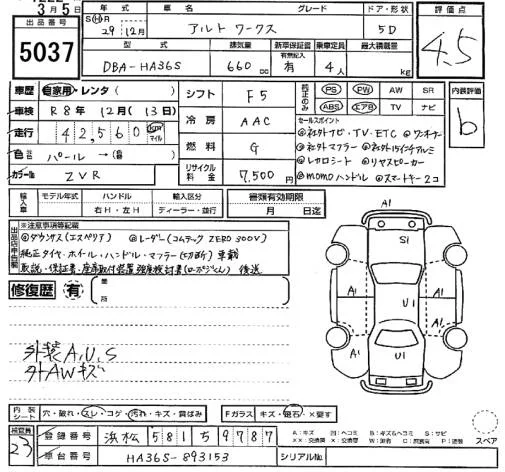 3月5日
年式 車名 グレード ドア・形状 評価点
出品番号 5037
S H R 29年 12月 アルト ワークス 5D
4.5
型式 排気量 新車保証書 乗車定員 最大積載量
DBA-HA36S 660cc 有無記入 有 4人 kg
車歴 自家用・レンタ( )
シフト F5
純正のみ PS PW AW SR
ABS エアB TV ナビ
内装評価 b
車検 R8年 12月(13日)
冷房 AAC
セールスポイント
◎社外ナビ・TV・ETC ◎ワンオナー
走行 42,560 km マイル
◎社外マフラー ◎社外15インチアルミ
色 パール→(色)
燃料 G
◎レカロシート ◎リヤスピーカー
カラーNo. ZVR
リサイクル料金 7,500円
◎momoハンドル ◎スマートキー2コ
輸入車 モデル年式 ハンドル 輸入区分 書類有効期限
年 右H・左H ディーラー・並行 月 日迄
※注意事項等記載
◎ダウンサス(エスペリア) ◎レーダー(コムテック ZERO 300V)
純正タイヤ・ホイール・ハンドル・マフラー(切断)車載
取説・保証書・座席取付装置強度検討書(ローポジくん) 後送
修復歴 有 箇所
外装A,U,S
外AWキズ
A1
S1
A1 A1
A1 U1 A1
U1
内装シート 穴・破れ・スレ・コゲ・汚れ・キズ・黄ばみ
Fガラス キズ・飛石・×要す
スペア
検査員 23
登録番号 浜松 581 ち 9787
車台番号 HA36S-893153
シリアルNo.
A:キズ U:ヘコミ B:キズ&ヘコミ S:サビ